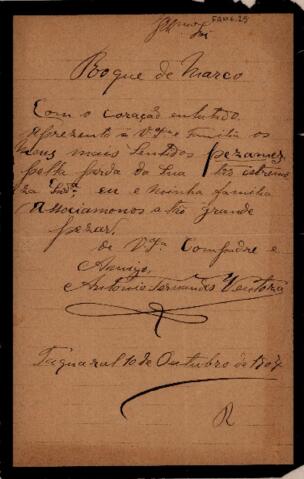 FAM6.25
Illmo Snr
Roque de Marco
Com o coração enlutado
apresento á V.Sª e familia os
meus mais sentidos pezames
pella perda da sua tão estreme
cida eu e minha familia
Associamonos a tão grande
pezar.
de V.Sª Compadre e
Amigo,
Antonio Fernandes Ventura
Taquaral 10 de Outubro de 1907
R